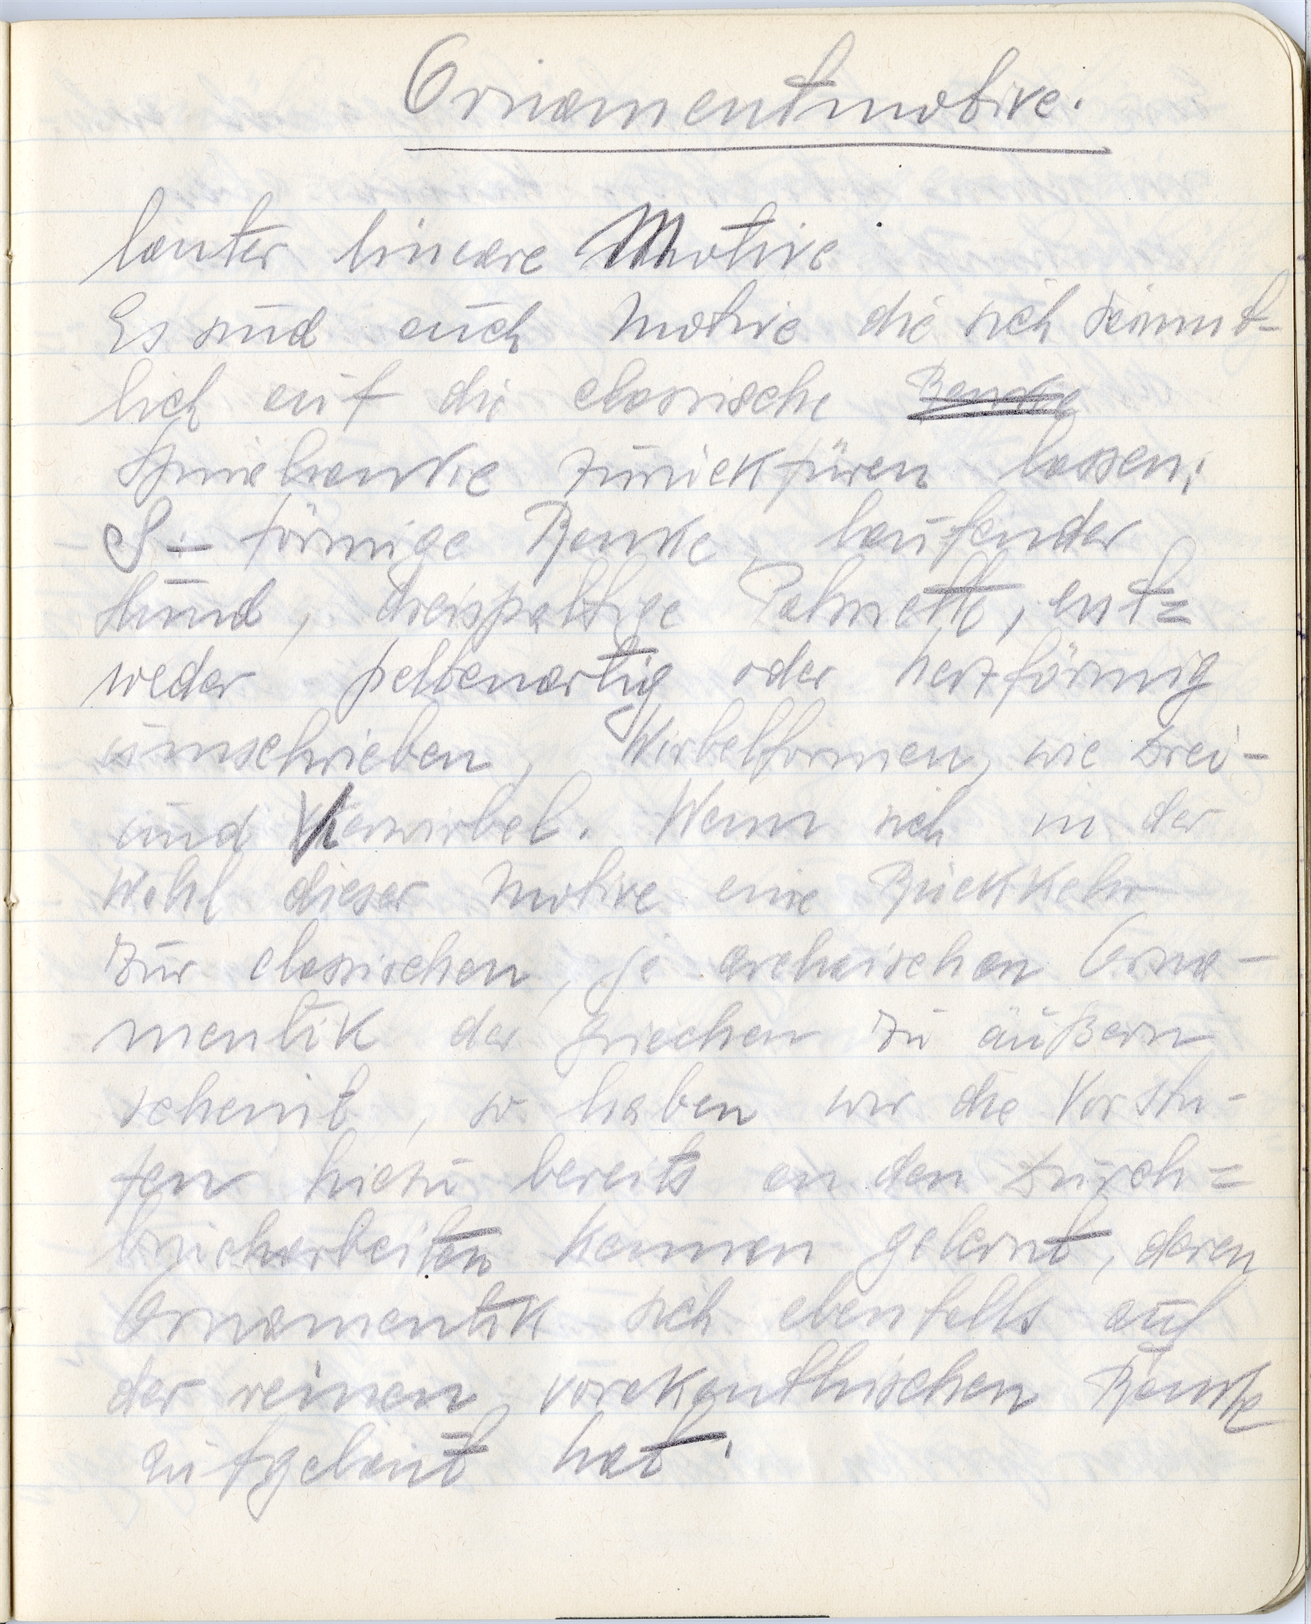 Ornamentmotive.
lauter lineare Motive
Es sind auch Motive die sich sämmt-
lich auf die classische Ranke
Spiralranke zurückfüren lassen:
S-förmige Ranke, laufender
Hund, dreispaltige Palmette, ent=
weder peltenartig oder herzförmig
umschrieben, Wirbelformen, wie Drei-
und Vierwirbel. Wenn sich in der
Wahl dieser Motive eine Rückkehr
zur classischen, ja archaischen Orna-
mentik der Griechen zu äußern
scheint, so haben wir die Vorstu-
fen hiezu bereits an den Durch=
brucharbeiten kennen gelernt, deren
Ornamentik sich ebenfalls auf
der reinen vorakanthischen Ranke
aufgebaut hat.